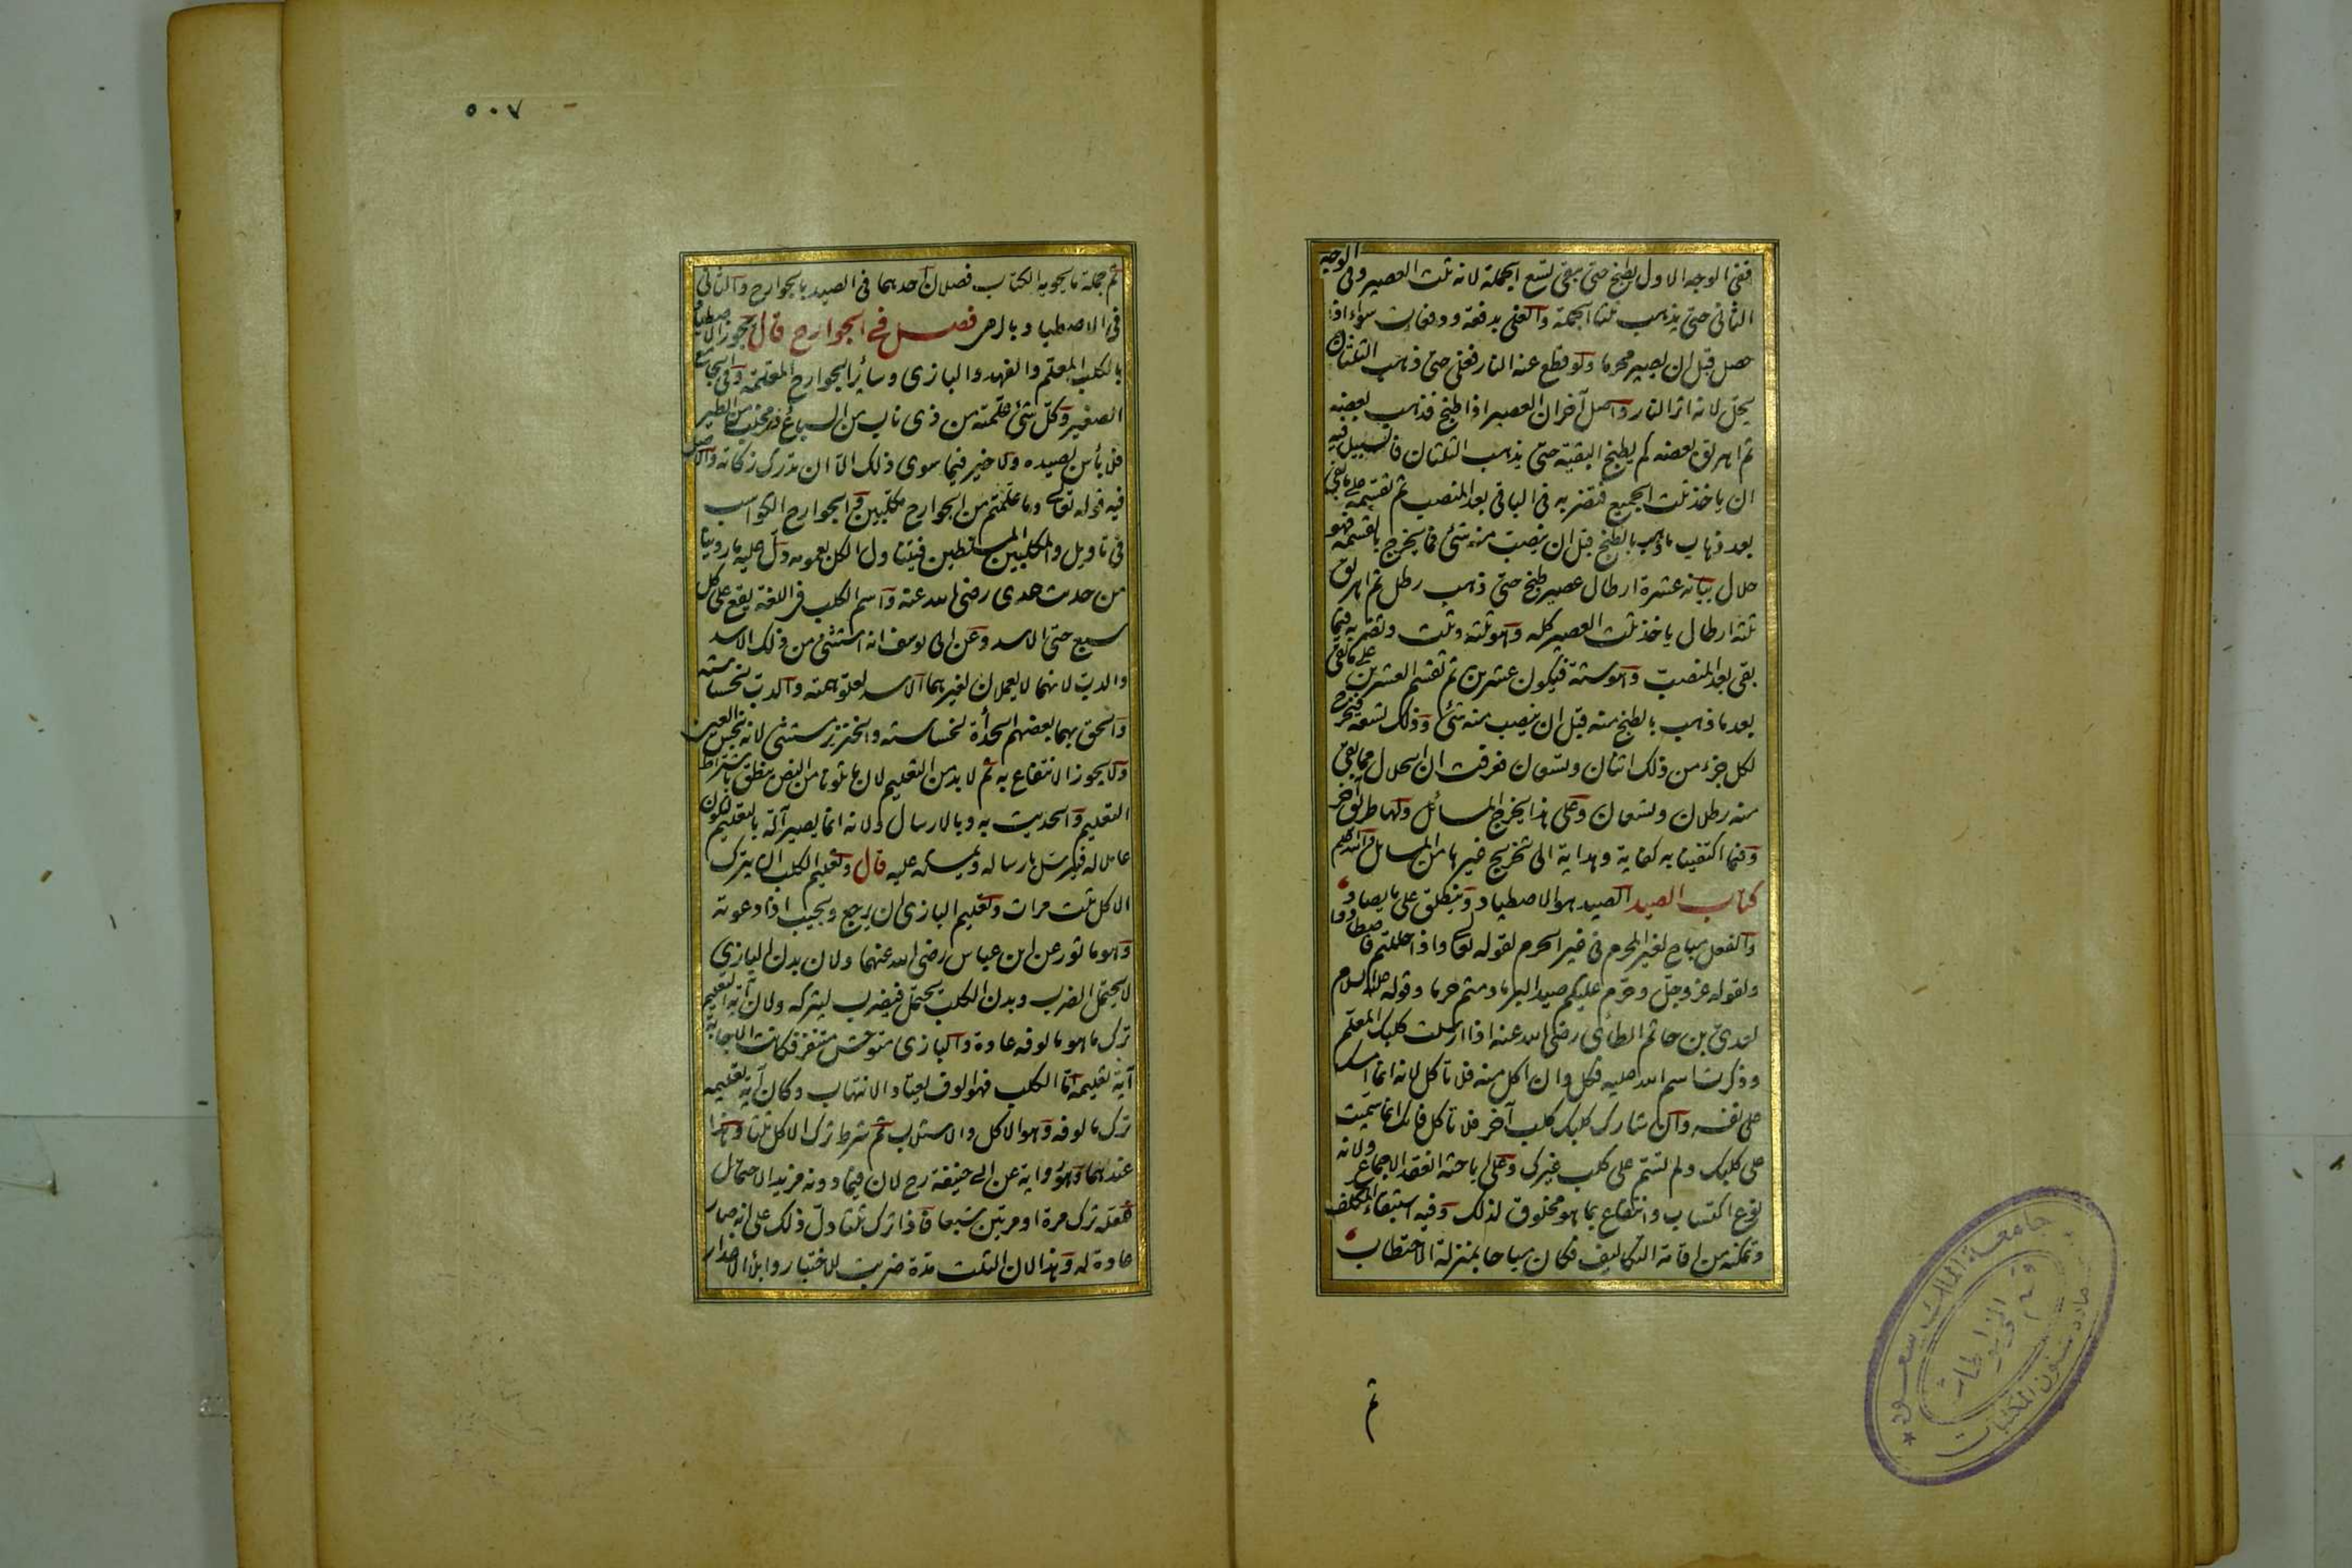 ففى الوجه الاول يطبخ حتى يبقى تسع الجملة لانه ثلث العصير وفى الوجه
الثانى حتى يذهب ثلثا الجملة والغلى بدفعة ودفعات سواء اذا
حصل قبل ان يصير محرما ولو قطع عنه النار فغلى حتى ذهب الثلثان
يحل لانه اثر النار واصل آخر ان العصير اذا طبخ فذهب بعضه
ثم اهريق بعضه كم يطبخ البقية حتى يذهب الثلثان فالسبيل فيه
ان ياخذ ثلث الجميع فتضربه فى الباقى بعد المنصب ثم تقسمه على ما بقى
بعد ذهاب ما ذهب بالطبخ قبل ان ينصب منه شئ فما يخرج بالقسمة فهو
حلال بيانه عشرة ارطال عصير طبخ حتى ذهب رطل ثم اهريق
ثلثة ارطال ياخذ ثلث العصير كله وهو ثلثة وثلث وتضربه فيما
بقى بعد المنصب وهو ستة فيكون عشرين ثم تقسم العشرين على ما بقى
بعد ما ذهب بالطبخ منه قبل ان ينصب منه شئ وذلك تسعة فيخرج
لكل جزء من ذلك اثنان وتسعان فعرفت ان الحلال مما بقى
منه رطلان وتسعان وعلى هذا يخرج المسائل ولها طريق آخر
وفيما اكتفينا به كفاية وهداية الى تخريج غيرها من المسائل والله اعلم
كتاب الصيد الصيد هو الاصطياد وينطلق على ما يصاد
والفعل مباح لغير المحرم فى غير الحرم لقوله تعالى واذا حللتم فاصطادوا
ولقوله عز وجل وحرم عليكم صيد البر ما دمتم حرما وقوله عليه السلام
لعدى بن حاتم الطائى رضى الله عنه اذا ارسلت كلبك المعلم
وذكرت اسم الله عليه فكل وان اكل منه فلا تاكل لانه انما امسك
على نفسه وان شارك كلبك كلب آخر فلا تاكل فانك انما سميت
على كلبك ولم تسم على كلب غيرك وعلى اباحته انعقد الاجماع ولانه
نوع اكتساب وانتفاع بما هو مخلوق لذلك وفيه استبقاء المكلف
وتمكنه من اقامة التكاليف فكان مباحا بمنزلة الاحتطاب
ثم
٥٠٧
ثم جملة ما يحويه الكتاب فصلان احدهما فى الصيد بالجوارح والثانى
فى الاصطياد بالرمى فصل فى الجوارح قال يجوز الاصطياد
بالكلب المعلم والفهد والبازى وسائر الجوارح المعلمة وفى الجامع
الصغير وكل شئ علمته من ذى ناب من السباع وذى مخلب من الطير
فلا بأس بصيده ولا خير فيما سوى ذلك الا ان تدرك زكاته والاصل
فيه قوله تعالى وما علمتم من الجوارح مكلبين والجوارح الكواسب
فى تاويل والمكلبين المسلطين فيتناول الكل بعمومه دل عليه ما روينا
من حديث عدى رضى الله عنه واسم الكلب فى اللغة يقع على كل
سبع حتى الاسد وعن ابى يوسف انه استثنى من ذلك الاسد
والدب لانهما لا يعملان لغيرهما الاسد لعلو همته والدب لخساسته
والحق بهما بعضهم الحدأة لخساسته والخنزير مستثنى لانه نجس العين
ولا يجوز الانتفاع به ثم لا بد من التعليم لان ما تلونا من النص ينطق باشتراط
التعليم والحديث به وبالارسال ولانه انما يصير آلة بالتعليم ليكون
عاملا له فيترسل بارساله ويمسكه عليه قال وتعليم الكلب ان يترك
الاكل ثلث مرات وتعليم البازى ان يرجع ويجيب اذا دعوته
وهو ماثور عن ابن عباس رضى الله عنهما ولان بدن البازى
لا يحتمل الضرب وبدن الكلب يحتمل فيضرب ليتركه ولان آية التعليم
ترك ما هو مالوفه عادة والبازى متوحش متنفر فكانت الاجابة
آية تعليمه اما الكلب فهو الوف يعتاد الانتهاب وكان آية تعليمه
ترك مالوفه وهو الاكل والاستلاب ثم شرط ترك الاكل ثلثا وهذا
عندهما وهو رواية عن ابى حنيفة رح لان فيما دونه مزيد الاحتمال
فلعله ترك مرة او مرتين شبعا فاذا ترك ثلثا دل ذلك على انه صار
عادة له وهذا لان الثلث مدة ضربت للاختبار وابلاء الاعذار
جامعة الملك سعود
قسم المخطوطات
عمادة شئون المكتبات